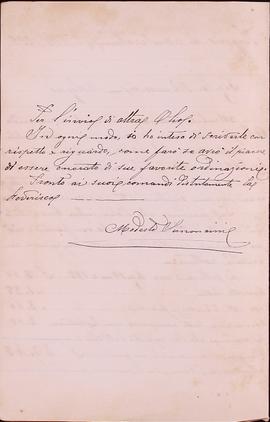 Per l'invio di altra Chop.
In ogni modo, io ho inteso di servirla con
rispetto e riguardo, come farò se avrò il piacere
di essere onorato di sue favorite ordinazioni.
Pronto ai suoi comandi distintamente La
Riverisco
Modesto